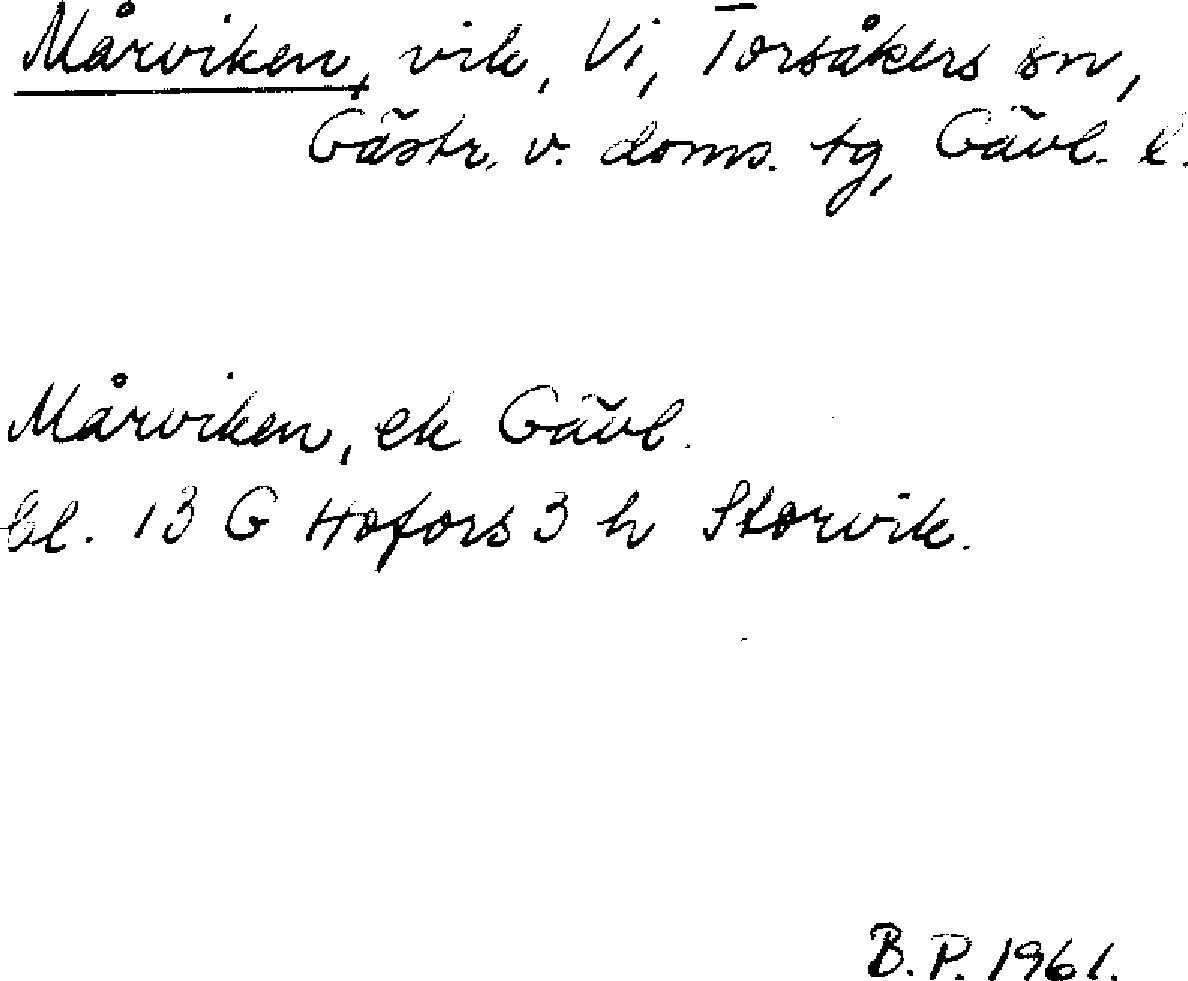 Mårviken, vik, Vi, Torsåkers sn,
Gästr. v. doms. tg, Gävl. l.
Mårviken, ek Gävl.
bl. 13 G Hofors 3 h Storvik.
B. P. 1961.